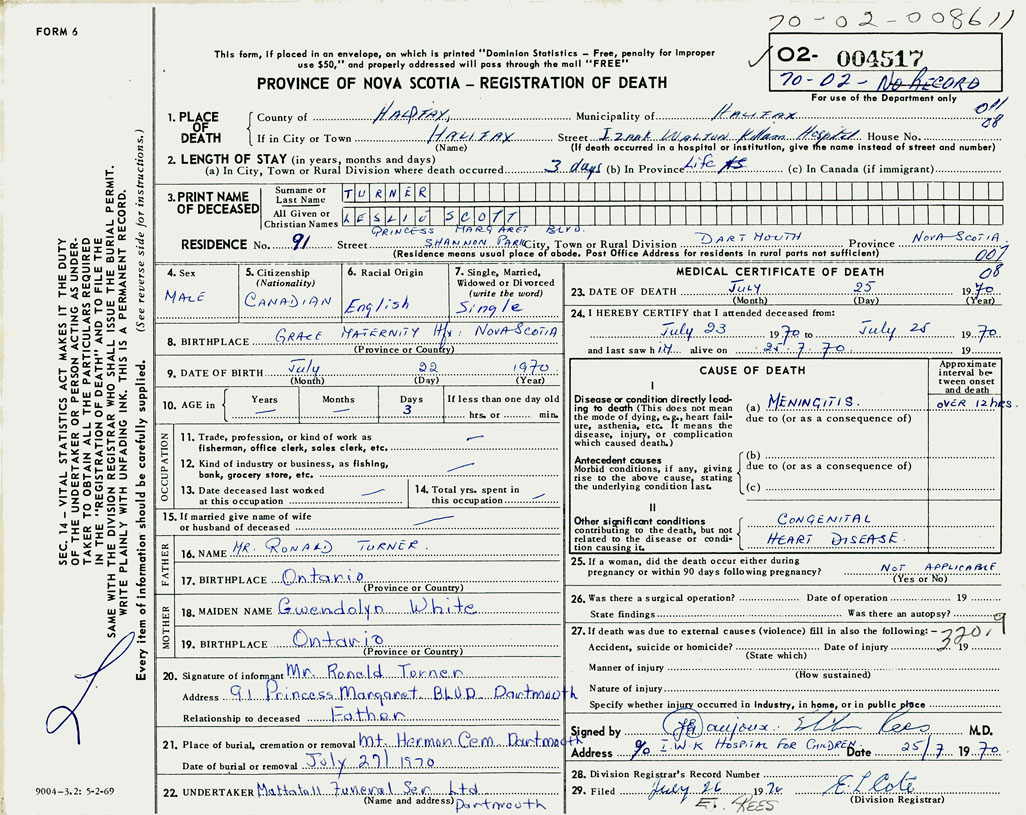 FORM 6
70-02-008611
This form, if placed in an envelope, on which is printed "Dominion Statistics – Free, penalty for improper
use $50," and properly addressed will pass through the mail "FREE"
02- 004517
70-02- NO RECORD
PROVINCE OF NOVA SCOTIA – REGISTRATION OF DEATH
For use of the Department only
1. PLACE OF DEATH
County of HALIFAX, Municipality of HALIFAX 011
08
If in City or Town HALIFAX Street IZAAK WALTON Killam Hospital House No.
(Name) (If death occurred in a hospital or institution, give the name instead of street and number)
2. LENGTH OF STAY (in years, months and days)
(a) In City, Town or Rural Division where death occurred 3 days (b) In Province Life (c) In Canada (if immigrant)
3. PRINT NAME OF DECEASED
Surname or Last Name TURNER
All Given or Christian Names LESLIE SCOTT
PRINCESS MARGARET BLVD.
RESIDENCE No. 91 Street SHANNON PARK City, Town or Rural Division DARTMOUTH Province NOVA SCOTIA
(Residence means usual place of abode. Post Office Address for residents in rural parts not sufficient) 007
08
4. Sex
MALE
5. Citizenship
(Nationality)
CANADIAN
6. Racial Origin
English
7. Single, Married,
Widowed or Divorced
(write the word)
Single
8. BIRTHPLACE GRACE MATERNITY Hfx: NOVA SCOTIA
(Province or Country)
9. DATE OF BIRTH July 22 1970
(Month) (Day) (Year)
10. AGE in
Years —
Months —
Days 3
If less than one day old
hrs. or min.
OCCUPATION
11. Trade, profession, or kind of work as
fisherman, office clerk, sales clerk, etc. —
12. Kind of industry or business, as fishing,
bank, grocery store, etc. —
13. Date deceased last worked
at this occupation —
14. Total yrs. spent in
this occupation —
15. If married give name of wife
or husband of deceased —
FATHER
16. NAME MR. RONALD TURNER.
17. BIRTHPLACE Ontario
(Province or Country)
MOTHER
18. MAIDEN NAME Gwendolyn White
19. BIRTHPLACE Ontario
(Province or Country)
20. Signature of informant Mr. Ronald Turner
Address 91 Princess Margaret BLVD Dartmouth
Relationship to deceased Father
21. Place of burial, cremation or removal Mt. Hermon Cem. Dartmouth
Date of burial or removal July 27/1970
22. UNDERTAKER Mattatall Funeral Ser Ltd
(Name and address) Dartmouth
MEDICAL CERTIFICATE OF DEATH
23. DATE OF DEATH July 25 1970
(Month) (Day) (Year)
24. I HEREBY CERTIFY that I attended deceased from:
July 23 1970 to July 25 1970
and last saw him alive on 25.7.70. 19
CAUSE OF DEATH
Approximate
interval be-
tween onset
and death
I
Disease or condition directly lead-
ing to death (This does not mean
the mode of dying, e.g., heart fail-
ure, asthenia, etc. It means the
disease, injury, or complication
which caused death.)
(a) MENINGITIS. OVER 12 HRS.
due to (or as a consequence of)
Antecedent causes
Morbid conditions, if any, giving
rise to the above cause, stating
the underlying condition last.
(b)
due to (or as a consequence of)
(c)
II
Other significant conditions
contributing to the death, but not
related to the disease or condi-
tion causing it.
CONGENITAL
HEART DISEASE.
25. If a woman, did the death occur either during
pregnancy or within 90 days following pregnancy? NOT APPLICABLE
(Yes or No)
26. Was there a surgical operation? Date of operation 19
State findings Was there an autopsy?
27. If death was due to external causes (violence) fill in also the following:– 320.9
Accident, suicide or homicide? Date of injury 19
(State which)
Manner of injury
(How sustained)
Nature of injury
Specify whether injury occurred in industry, in home, or in public place
Signed by Rees M.D.
Address % I.W.K HOSPITAL FOR CHILDREN Date 25/7 1970
28. Division Registrar's Record Number
29. Filed July 26 1970 E L Cote
E. REES (Division Registrar)
9004-3.2: 5-2-69
SEC. 14 – VITAL STATISTICS ACT MAKES IT THE DUTY
OF THE UNDERTAKER OR PERSON ACTING AS UNDER-
TAKER TO OBTAIN ALL THE PARTICULARS REQUIRED
IN THE "REGISTRATION OF DEATH" AND TO FILE THE
SAME WITH THE DIVISION REGISTRAR WHO SHALL ISSUE THE BURIAL PERMIT.
WRITE PLAINLY WITH UNFADING INK. THIS IS A PERMANENT RECORD.
Every item of information should be carefully supplied. (See reverse side for instructions.)